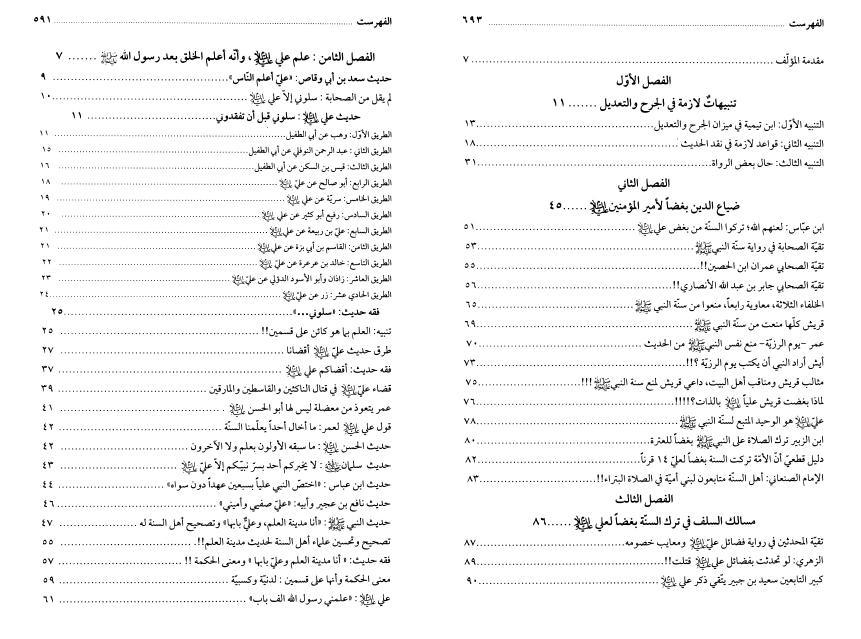 الفهرست ........ ٦٩٣
مقدمة المؤلّف ........ ٧
الفصل الأوّل
تنبيهاتٌ لازمة في الجرح والتعديل ....... ١١
التنبيه الأوّل: ابن تيمية في ميزان الجرح والتعديل ........ ١٣
التنبيه الثاني: قواعد لازمة في نقد الحديث ........ ١٨
التنبيه الثالث: حال بعض الرواة ........ ٣١
الفصل الثاني
ضياع الدين بغضاً لأمير المؤمنين ...... ٤٥
ابن عبّاس: لعنهم الله؛ تركوا السنّة من بغض علي ........ ٥١
تقيّة الصحابة في رواية سنّة النبي ﷺ ........ ٥٣
تقيّة الصحابي عمران ابن الحصين!! ........ ٥٥
تقيّة الصحابي جابر بن عبد الله الأنصاري!! ........ ٥٦
الخلفاء الثلاثة، معاوية رابعاً، منعوا من سنّة النبي ﷺ ........ ٦٥
قريش كلّها منعت من سنّة النبي ﷺ ........ ٦٩
عمر -يوم الرزيّة- منع نفس النبي ﷺ من الحديث ........ ٧٠
أيش أراد النبي أن يكتب يوم الرزيّة ؟!! ........ ٧٣
مثالب قريش ومناقب أهل البيت، داعي قريش لمنع سنة النبي ﷺ!!! ........ ٧٥
لماذا بغضت قريش علياً بالذات؟!!!! ........ ٧٦
عليّ هو الوحيد المتبع لسنّة النبي ﷺ ........ ٧٨
ابن الزبير ترك الصلاة على النبي ﷺ بغضاً للعترة ........ ٨٠
دليل قطعيّ أنّ الأمّة تركت السنة بغضاً لعليّ ١٤ قرناً ........ ٨٢
الإمام الصنعاني: أهل السنّة متابعون لبني أميّة في الصلاة البتراء!! ........ ٨٣
الفصل الثالث
مسالك السلف في ترك السنّة بغضاً لعلي ...... ٨٦
تقيّة المحدثين في رواية فضائل عليّ ومعايب خصومه ........ ٨٧
الزهري: لو تحدثت بفضائل علي قتلت!! ........ ٨٩
كبير التابعين سعيد بن جبير يتّقي ذكر علي ........ ٩٠
الفهرست ........ ٥٩١
الفصل الثامن : علم علي ، وأنّه أعلم الخلق بعد رسول الله ﷺ ....... ٧
حديث سعد بن أبي وقاص: «عليّ أعلم النّاس» ........ ٩
لم يقل من الصحابة : سلوني إلاّ علي ........ ١٠
حديث علي : سلوني قبل أن تفقدوني ........ ١١
الطريق الأوّل: وهب عن أبي الطفيل ........ ١١
الطريق الثاني : عبد الرحمن النوفلي عن أبي الطفيل ........ ١٥
الطريق الثالث: قيس بن السكن عن أبي الطفيل ........ ١٦
الطريق الرابع: أبو صالح عن عليّ ........ ١٨
الطريق الخامس: سريّة عن علي ........ ١٩
الطريق السادس: رفيع أبو كثير عن علي ........ ٢٠
الطريق السابع: عليّ بن ربيعة عن علي ........ ٢١
الطريق الثامن: القاسم بن أبي بزة عن علي ........ ٢١
الطريق التاسع: خالد بن عرعرة عن علي ........ ٢٢
الطريق العاشر: زاذان وأبو الأسود الدؤلي عن علي ........ ٢٣
الطريق الحادي عشر: زر عن علي ........ ٢٤
فقه حديث: «سلوني...» ........ ٢٥
تنبيه: العلم بما هو كائن على قسمين!! ........ ٢٥
طرق حديث عليّ أقضانا ........ ٢٧
فقه حديث: أقضاكم علي ........ ٣٧
قضاء عليّ في قتال الناكثين والقاسطين والمارقين ........ ٣٩
عمر يتعوذ من معضلة ليس لها أبو الحسن ........ ٤١
قول علي لعمر: ما أخال أحداً يعلّمنا السنّة ........ ٤٢
حديث الحسن : ما سبقه الأولون بعلم ولا الآخرون ........ ٤٢
حديث سلمان : لا يخبركم أحد بسرّ نبيّكم إلاّ عليّ ........ ٤٣
حديث ابن عباس : «اختصّ النبي علياً بسبعين عهداً دون سواه» ........ ٤٤
حديث نافع بن عجير وأبيه: «عليّ صفيي وأميني» ........ ٤٦
حديث النبي ﷺ: «أنا مدينة العلم، وعليٌّ بابها» وتصحيح أهل السنة له ........ ٤٧
تصحيح وتحسين علماء أهل السنة لحديث مدينة العلم!! ........ ٥٥
فقه حديث: « أنا مدينة العلم وعليّ بابها » ومعنى الحكمة !! ........ ٥٧
معنى الحكمة وأنها على قسمين : لدنيّة وكسبيّة ........ ٥٩
علي : «علمني رسول الله الف باب» ........ ٦١